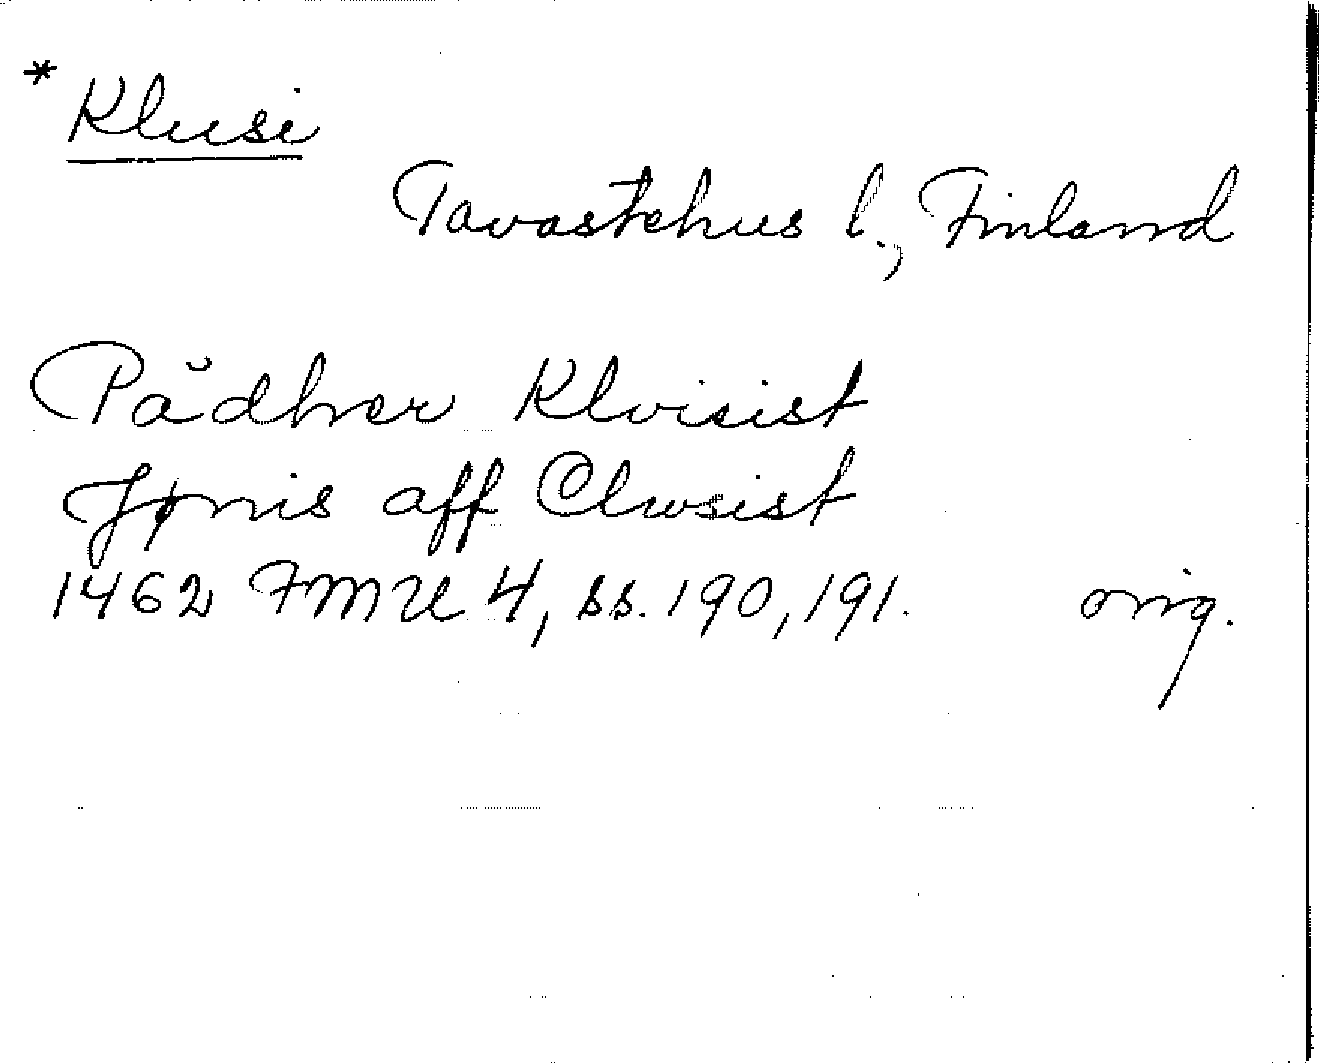 * Klusi
Tavastehus l., Finland
Pädher Klvisist
Jønis aff Clwsist
1462 FMU 4, ss. 190, 191. orig.